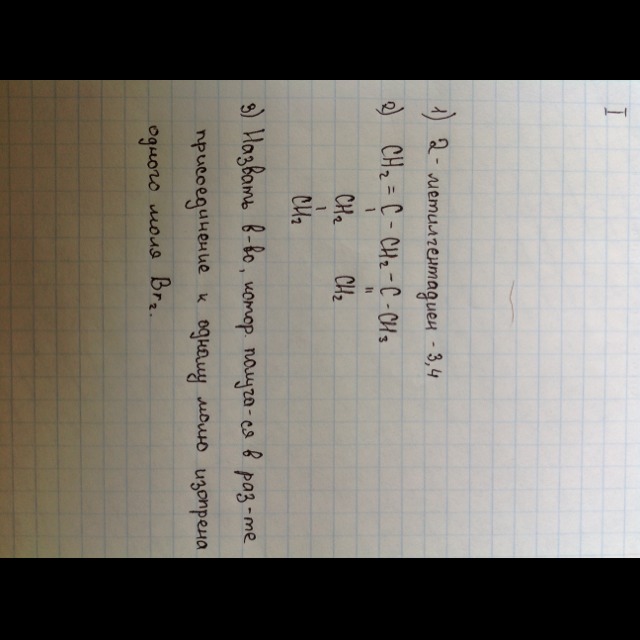 I
1) 2 - метилгептадиен - 3,4
2) CH₂ = C - CH₂ - C - CH₃
CH₂ CH₂
CH₂
3) Назвать в-во, котор. получ-ся в рез-те
присоединение к одному молю изопрена
одного моля Br₂.